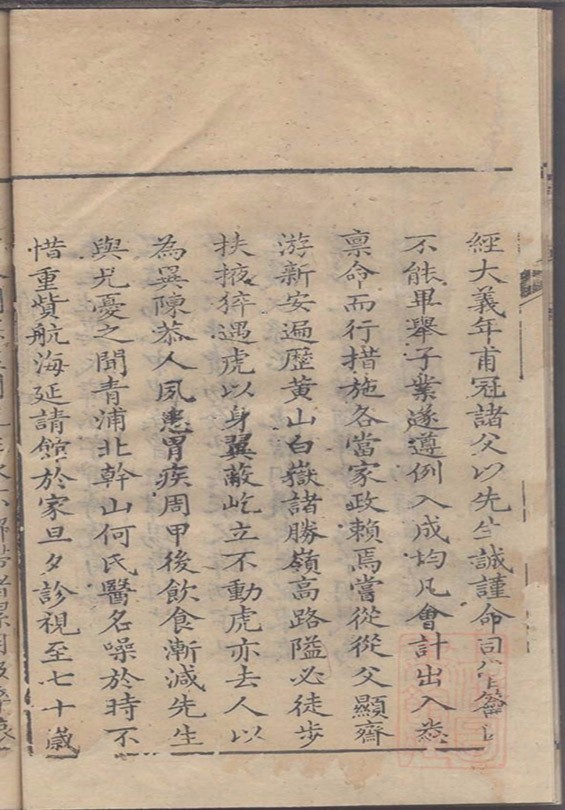 經大義年甫冠諸父以先生誠謹命司管籥
不能畢舉子業遂遵例入成均凡會計出入悉
稟命而行措施各當家政賴焉嘗從從父顯齋
游新安遍歷黃山白嶽諸勝嶺高路隘必徒步
扶掖猝遇虎以身翼蔽屹立不動虎亦去人以
為異陳恭人夙患胃疾周甲後飲食漸減先生
與兄憂之聞青浦北幹山何氏醫名噪於時不
惜重貲航海延請館於家旦夕診視至七十歲